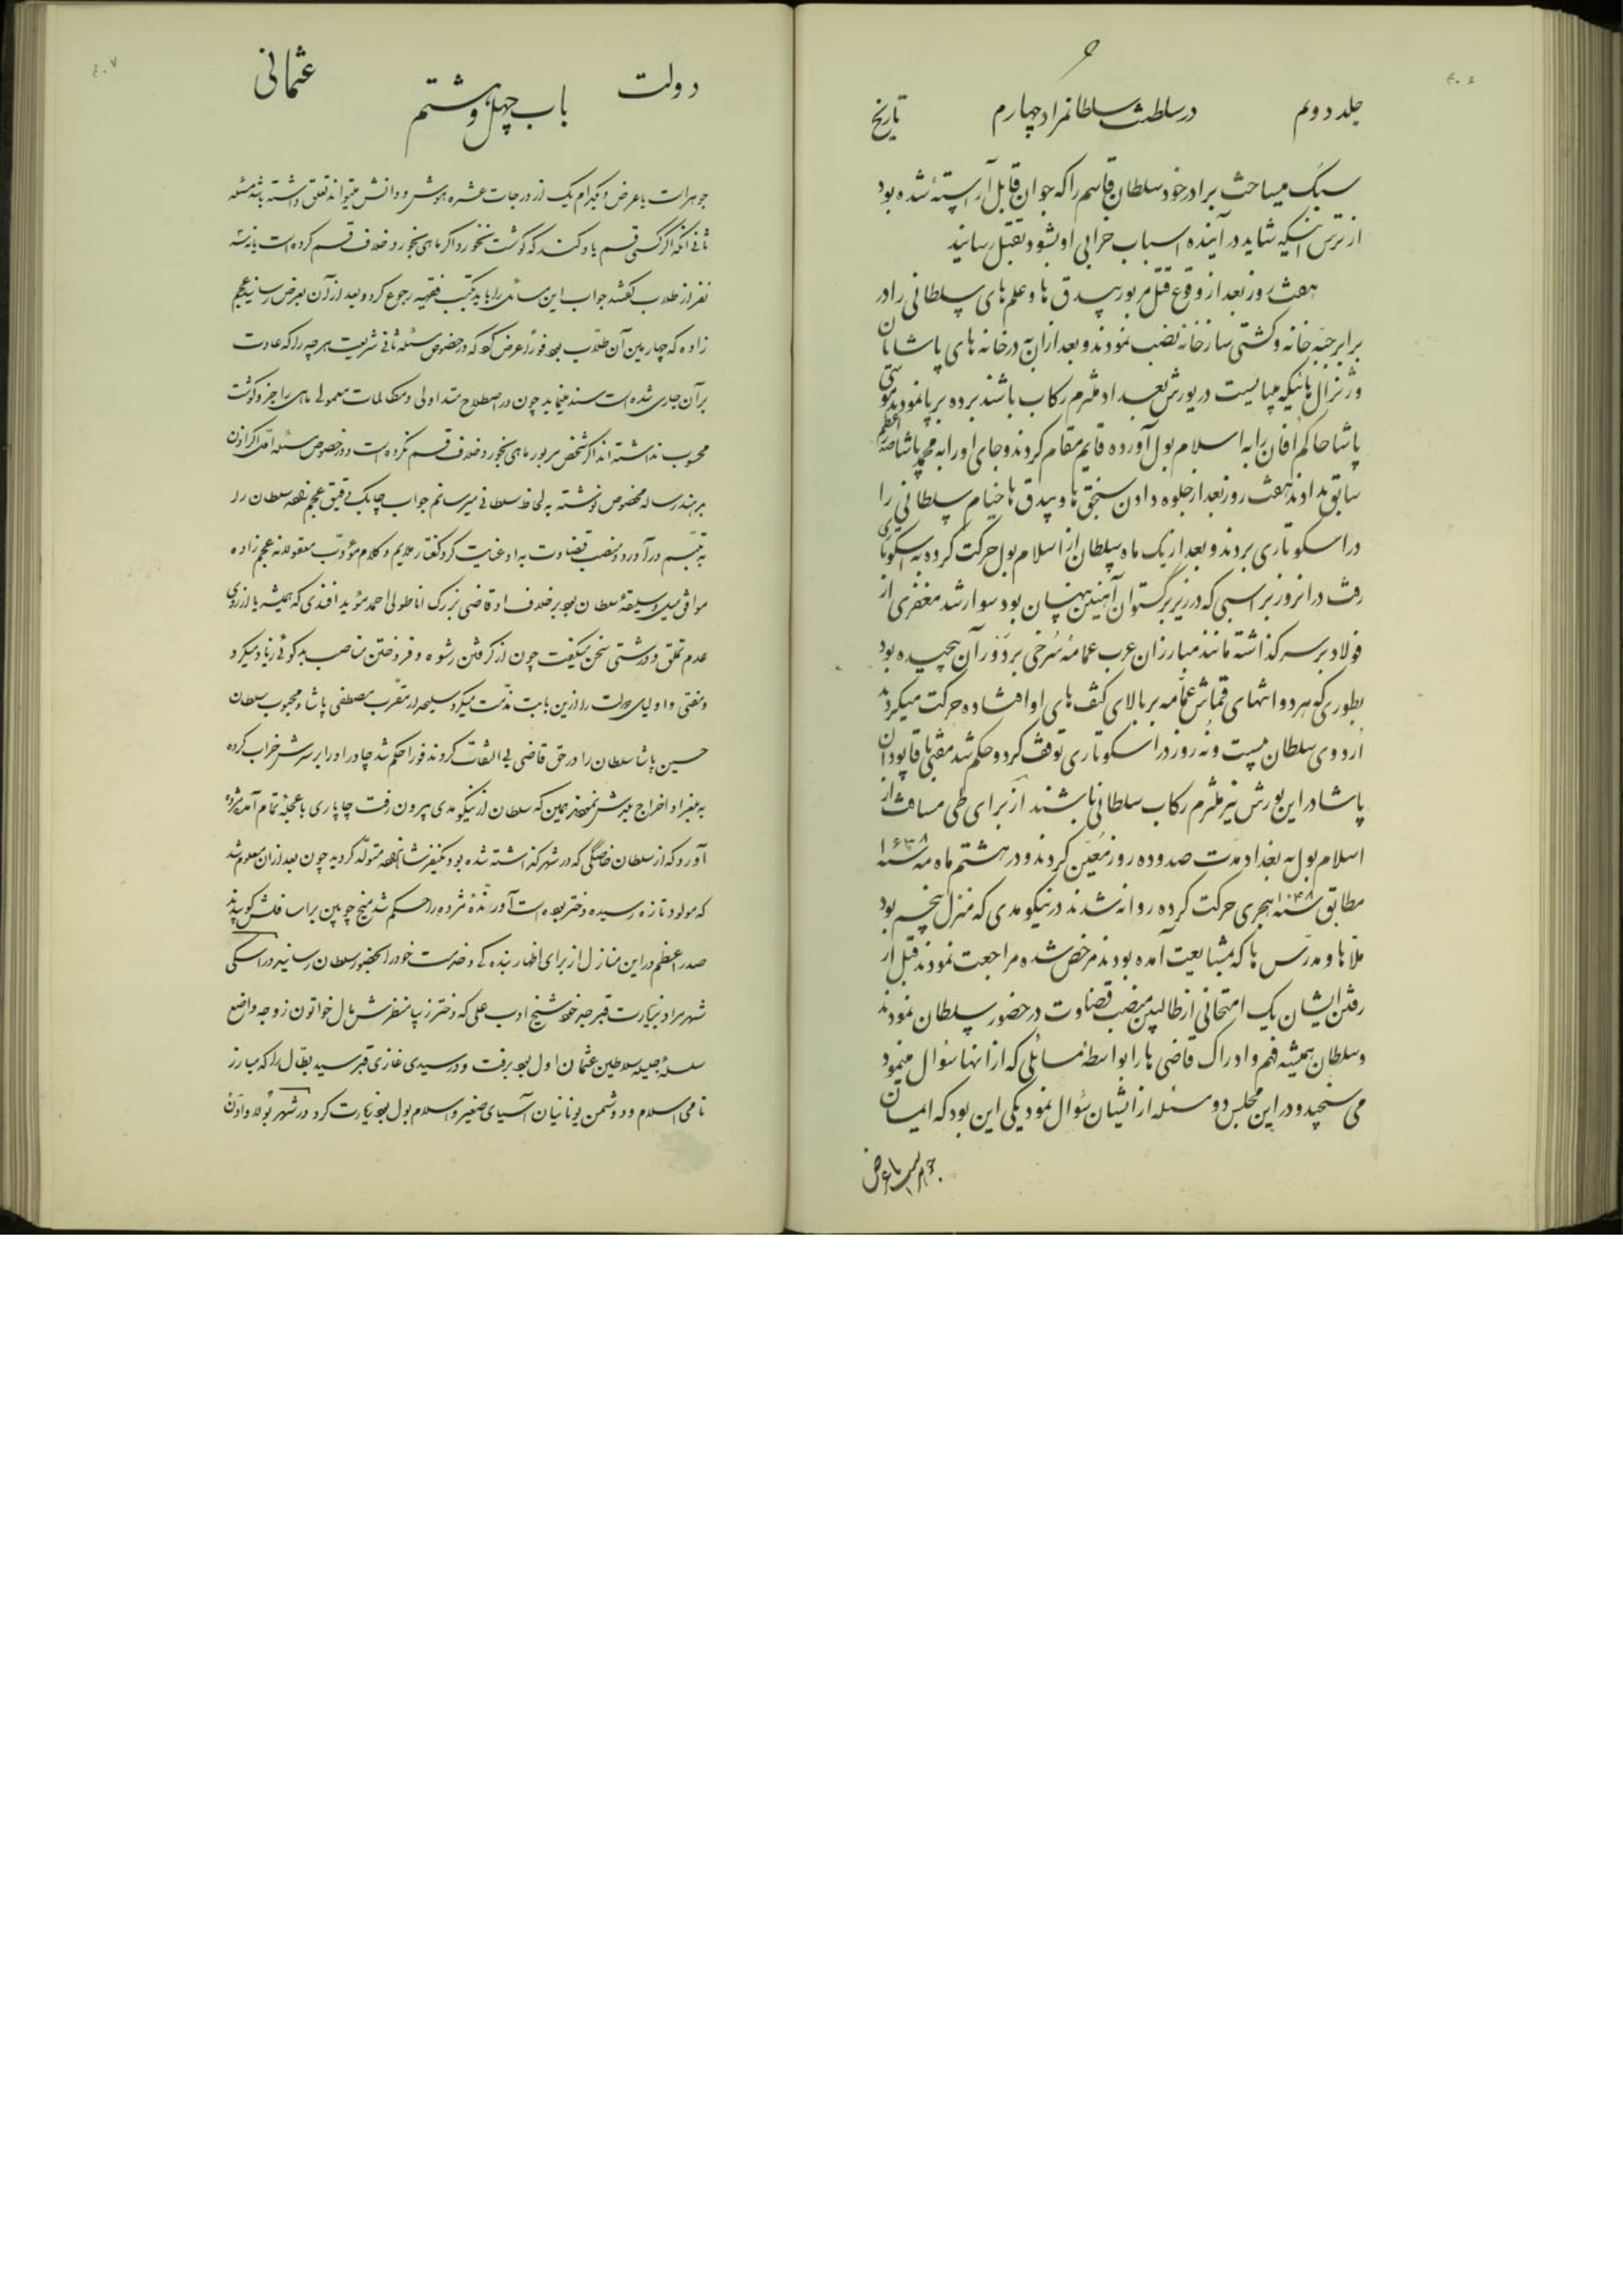 ۴۰۶
جلد دویم در سلطنت سلطانمراد چهارم تاریخ
سبک میساخت برادر خود سلطان قاسم را که جوان قابل آراسته شده بود
از ترس اینکه شاید در آینده اسباب خرابی او بشود بقتل رسانید
هفت روز بعد از وقوع قتل مزبور بیدق ها و علم های سلطانی را در
برابر جبه خانه و کشتی سازخانه نصب نمودند و بعد از آن به در خانه های پاشایان
و ژنرال هائیکه میبایست در یورش بغداد ملتزم رکاب باشند برده برپا نمودند موسی
پاشا حاکم افان را به اسلامبول آورده قایم مقام کردند و جای او را به محمد پاشا صدر اعظم
سابق دادند هفت روز بعد از جلوه دادن سنجق ها و بیدق ها خیام سلطانی را
در اسکوتاری بردند و بعد از یک ماه سلطان از اسلامبول حرکت کرده به اسکوتاری
رفت در انروز بر اسبی که در زیر برگستوان آهنین پنهان بود سوار شد مغفری از
فولاد بر سر گذاشته مانند مبارزان عرب عمامهٔ سرخی بر دور آن پیچیده بود
بطوری که هر دو انتهای قماش عمامه بر بالای کتف های او افتاده حرکت میکردند
اردوی سلطان بیست و نه روز در اسکوتاری توقف کرد و حکم شد مفتی با قاپودان
پاشا در این یورش نیز ملتزم رکاب سلطانی باشند از برای طی مسافت از
اسلامبول به بغداد مدت صد و ده روز معین کردند و در هشتم ماه مه سنه ۱۶۳۸
مطابق سنه ۱۰۴۸ هجری حرکت کرده روانه شدند در نیکومدی که منزل پنجم بود
ملا ها و مدرس ها که بمشایعت آمده بودند مرخص شده مراجعت نمودند قبل از
رفتن ایشان یک امتحانی از طالبین منصب قضاوت در حضور سلطان نمودند
و سلطان همیشه فهم و ادراک قاضی ها را بواسطهٔ مسائلی که از انها سئوال مینمود
می سنجید و در این مجلس دو مسئله از ایشان سئوال نمود یکی این بود که ایمان
جوهر است یا عرض
۴۰۷
دولت باب چهل و هشتم عثمانی
جوهر است یا عرض و بکدام یک از درجات عشره هوش و دانش میتواند تعلق داشته باشد مسئله
ثانی آنکه اگر کسی قسم یاد کند که گوشت نخورد اگر ماهی بخورد خلاف قسم کرده است یا نه سه
نفر از طلاب گفتند جواب این مسائل را باید بکتب فقهیه رجوع کرد و بعد از آن بعرض رسانید عجم
زاده که چهارمین آن طلاب بود فوراً عرض کرد که در خصوص مسئله ثانی شریعت هر چه را که عادت
بر آن جاری شده است سند مینماید چون در اصطلاح متداولی و مکالمات معمولی ماهی را جزو گوشت
محسوب نداشته اند اگر شخص مزبور ماهی بخورد خلاف قسم نکرده است و در خصوص مسئله اول اگر اذن
بدهند رساله مخصوص نوشته به لحاظ سلطانی میرسانم جواب چابک دقیق عجم زاده سلطان را
به تبسم در آورد و منصب قضاوت به او عنایت کرد گفتار ملایم و کلام مؤدب معقولانه عجم زاده
موافق میل و سلیقهٔ سلطان بود برخلاف او قاضی بزرگ اناطولی احمد مؤید افندی که همیشه با از روی
عدم تملق و درشتی سخن میگفت چون از گرفتن رشوه و فروختن مناصب بدگوئی زیاد میکرد
و مفتی و اولیای دولت را ازین بابت مذمت میکرد سلیحدار مقرب مصطفی پاشا و محبوب سلطان
حسین پاشا سلطان را در حق قاضی بی التفات کردند فوراً حکم شد چادر او را بر سرش خراب کرده
به بلغراد اخراج بلدش نمودند همین که سلطان از نیکومدی بیرون رفت چاپاری با عجله تمام آمد مژده
آورد که از سلطان خاصگی که در شهر گذاشته شده بود یکنفر شاهزاده متولد گردید چون بعد از آن معلوم شد
که مولود تازه رسیده دختر بوده است آورندهٔ مژده را حکم شد میخ چوبین بر اسافلش کوبیدند
صدر اعظم در این منازل از برای اظهار بندگی و خدمت خود را بحضور سلطان رسانید در اسکی
شهر مراد بزیارت قبر جد خود شیخ ادب علی که دختر زیبا منظرش مال خواتون زوجه واضع
سلسلهٔ جلیله سلاطین عثمان اول بود برفت و در سیدی غازی قبر سید بطال را که مبارز
نامی اسلام و دشمن یونانیان آسیای صغیر و اسلامبول بود زیارت کرد در شهر بولاوادن